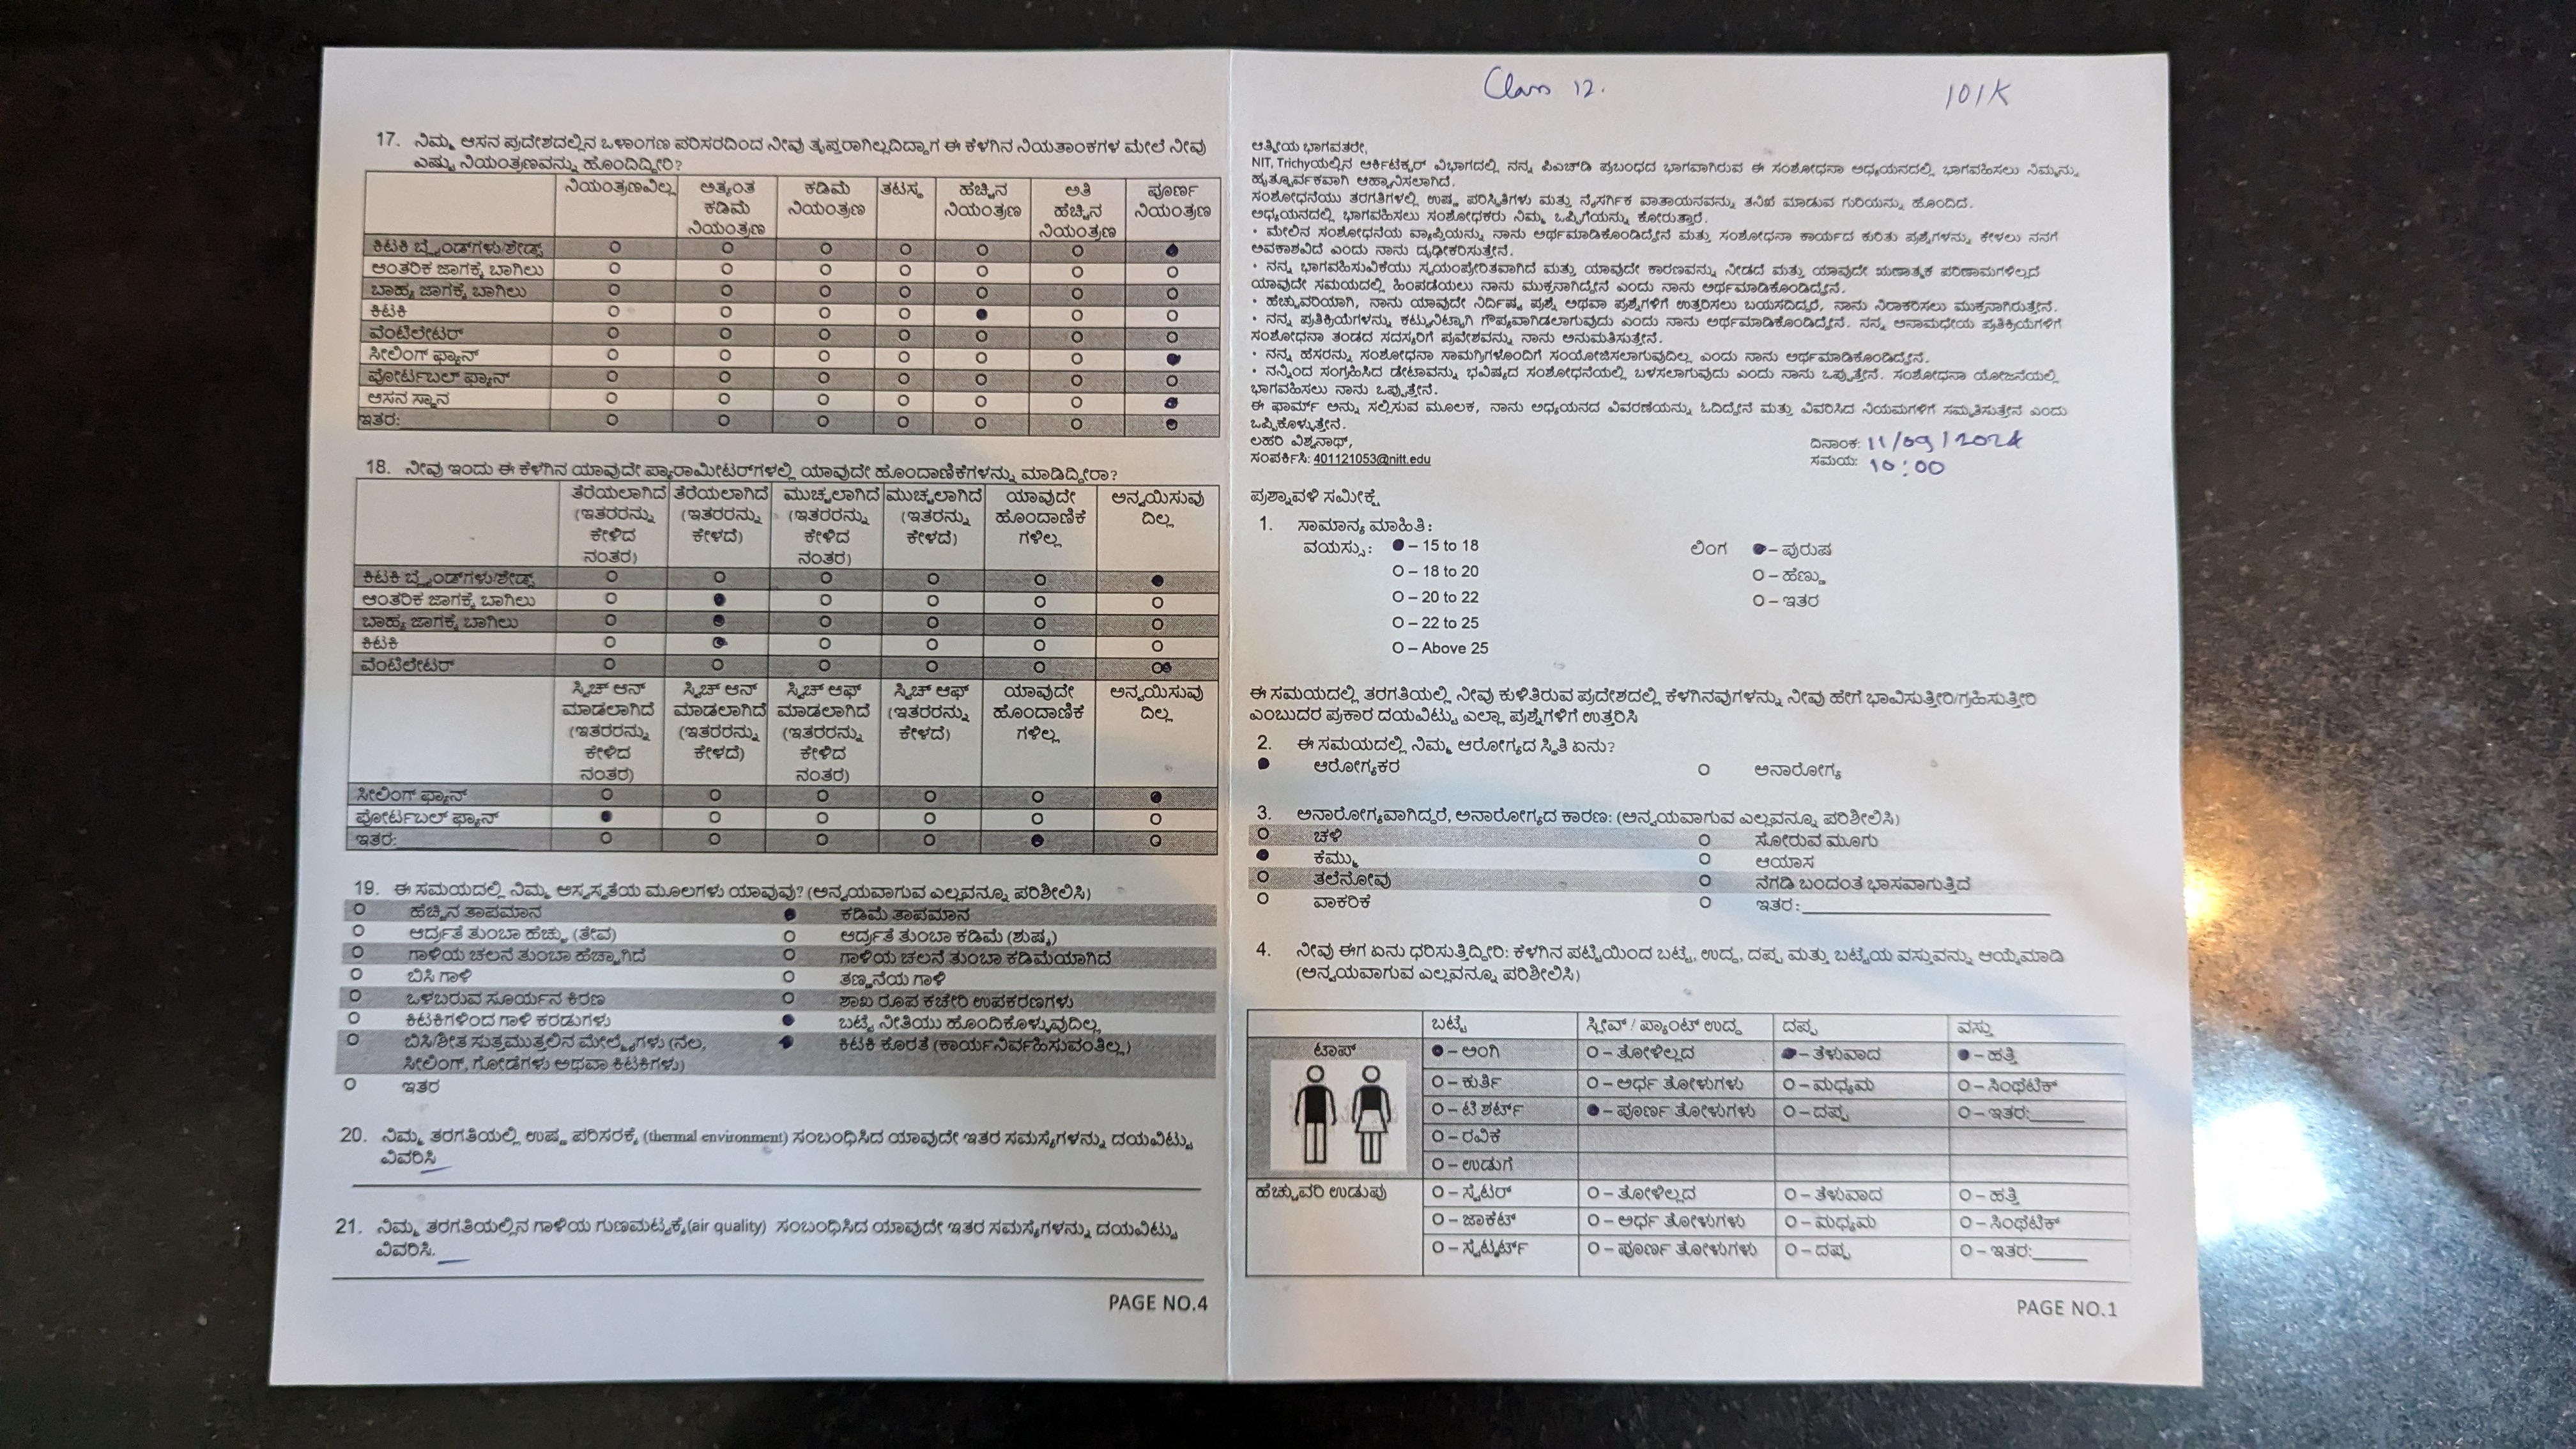 17. ನಿಮ್ಮ ಆಸನ ಪ್ರದೇಶದಲ್ಲಿನ ಒಳಾಂಗಣ ಪರಿಸರದಿಂದ ನೀವು ತೃಪ್ತರಾಗಿಲ್ಲದಿದ್ದಾಗ ಈ ಕೆಳಗಿನ ನಿಯತಾಂಕಗಳ ಮೇಲೆ ನೀವು
ಎಷ್ಟು ನಿಯಂತ್ರಣವನ್ನು ಹೊಂದಿದ್ದೀರಿ?
ನಿಯಂತ್ರಣವಿಲ್ಲ ಅತ್ಯಂತ ಕಡಿಮೆ ನಿಯಂತ್ರಣ ಕಡಿಮೆ ನಿಯಂತ್ರಣ ತಟಸ್ಥ ಹೆಚ್ಚಿನ ನಿಯಂತ್ರಣ ಅತಿ ಹೆಚ್ಚಿನ ನಿಯಂತ್ರಣ ಪೂರ್ಣ ನಿಯಂತ್ರಣ
ಕಿಟಕಿ ಬ್ಲೈಂಡ್‌ಗಳು/ಶೇಡ್ಸ್
ಆಂತರಿಕ ಜಾಗಕ್ಕೆ ಬಾಗಿಲು
ಬಾಹ್ಯ ಜಾಗಕ್ಕೆ ಬಾಗಿಲು
ಕಿಟಕಿ
ವೆಂಟಿಲೇಟರ್
ಸೀಲಿಂಗ್ ಫ್ಯಾನ್
ಪೋರ್ಟಬಲ್ ಫ್ಯಾನ್
ಆಸನ ಸ್ಥಾನ
ಇತರ:
18. ನೀವು ಇಂದು ಈ ಕೆಳಗಿನ ಯಾವುದೇ ಪ್ಯಾರಾಮೀಟರ್‌ಗಳಲ್ಲಿ ಯಾವುದೇ ಹೊಂದಾಣಿಕೆಗಳನ್ನು ಮಾಡಿದ್ದೀರಾ?
ತೆರೆಯಲಾಗಿದೆ (ಇತರರನ್ನು ಕೇಳಿದ ನಂತರ) ತೆರೆಯಲಾಗಿದೆ (ಇತರರನ್ನು ಕೇಳದೆ) ಮುಚ್ಚಲಾಗಿದೆ (ಇತರರನ್ನು ಕೇಳಿದ ನಂತರ) ಮುಚ್ಚಲಾಗಿದೆ (ಇತರರನ್ನು ಕೇಳದೆ) ಯಾವುದೇ ಹೊಂದಾಣಿಕೆ ಗಳಿಲ್ಲ ಅನ್ವಯಿಸುವು ದಿಲ್ಲ
ಕಿಟಕಿ ಬ್ಲೈಂಡ್‌ಗಳು/ಶೇಡ್ಸ್
ಆಂತರಿಕ ಜಾಗಕ್ಕೆ ಬಾಗಿಲು
ಬಾಹ್ಯ ಜಾಗಕ್ಕೆ ಬಾಗಿಲು
ಕಿಟಕಿ
ವೆಂಟಿಲೇಟರ್
ಸ್ವಿಚ್ ಆನ್ ಮಾಡಲಾಗಿದೆ (ಇತರರನ್ನು ಕೇಳಿದ ನಂತರ) ಸ್ವಿಚ್ ಆನ್ ಮಾಡಲಾಗಿದೆ (ಇತರರನ್ನು ಕೇಳದೆ) ಸ್ವಿಚ್ ಆಫ್ ಮಾಡಲಾಗಿದೆ (ಇತರರನ್ನು ಕೇಳಿದ ನಂತರ) ಸ್ವಿಚ್ ಆಫ್ (ಇತರರನ್ನು ಕೇಳದೆ) ಯಾವುದೇ ಹೊಂದಾಣಿಕೆ ಗಳಿಲ್ಲ ಅನ್ವಯಿಸುವು ದಿಲ್ಲ
ಸೀಲಿಂಗ್ ಫ್ಯಾನ್
ಪೋರ್ಟಬಲ್ ಫ್ಯಾನ್
ಇತರ:
19. ಈ ಸಮಯದಲ್ಲಿ ನಿಮ್ಮ ಅಸ್ವಸ್ಥತೆಯ ಮೂಲಗಳು ಯಾವುವು? (ಅನ್ವಯವಾಗುವ ಎಲ್ಲವನ್ನೂ ಪರಿಶೀಲಿಸಿ)
ಹೆಚ್ಚಿನ ತಾಪಮಾನ ಕಡಿಮೆ ತಾಪಮಾನ
ಆರ್ದ್ರತೆ ತುಂಬಾ ಹೆಚ್ಚು (ತೇವ) ಆರ್ದ್ರತೆ ತುಂಬಾ ಕಡಿಮೆ (ಶುಷ್ಕ)
ಗಾಳಿಯ ಚಲನೆ ತುಂಬಾ ಹೆಚ್ಚಾಗಿದೆ ಗಾಳಿಯ ಚಲನೆ ತುಂಬಾ ಕಡಿಮೆಯಾಗಿದೆ
ಬಿಸಿ ಗಾಳಿ ತಣ್ಣನೆಯ ಗಾಳಿ
ಒಳಬರುವ ಸೂರ್ಯನ ಕಿರಣ ಶಾಖ ರೂಪ ಕಚೇರಿ ಉಪಕರಣಗಳು
ಕಿಟಕಿಗಳಿಂದ ಗಾಳಿ ಕರಡುಗಳು ಬಟ್ಟೆ ನೀತಿಯು ಹೊಂದಿಕೊಳ್ಳುವುದಿಲ್ಲ
ಬಿಸಿ/ಶೀತ ಸುತ್ತಮುತ್ತಲಿನ ಮೇಲ್ಮೈಗಳು (ನೆಲ, ಕಿಟಕಿ ಕೊರತೆ (ಕಾರ್ಯನಿರ್ವಹಿಸುವಂತಿಲ್ಲ)
ಸೀಲಿಂಗ್, ಗೋಡೆಗಳು ಅಥವಾ ಕಿಟಕಿಗಳು)
ಇತರ
20. ನಿಮ್ಮ ತರಗತಿಯಲ್ಲಿ ಉಷ್ಣ ಪರಿಸರಕ್ಕೆ (thermal environment) ಸಂಬಂಧಿಸಿದ ಯಾವುದೇ ಇತರ ಸಮಸ್ಯೆಗಳನ್ನು ದಯವಿಟ್ಟು
ವಿವರಿಸಿ
21. ನಿಮ್ಮ ತರಗತಿಯಲ್ಲಿನ ಗಾಳಿಯ ಗುಣಮಟ್ಟಕ್ಕೆ(air quality) ಸಂಬಂಧಿಸಿದ ಯಾವುದೇ ಇತರ ಸಮಸ್ಯೆಗಳನ್ನು ದಯವಿಟ್ಟು
ವಿವರಿಸಿ.
PAGE NO.4
Class 12. 101K
ಆತ್ಮೀಯ ಭಾಗವತರೇ,
NIT, Trichyಯಲ್ಲಿನ ಆರ್ಕಿಟೆಕ್ಚರ್ ವಿಭಾಗದಲ್ಲಿ ನನ್ನ ಪಿಎಚ್‌ಡಿ ಪ್ರಬಂಧದ ಭಾಗವಾಗಿರುವ ಈ ಸಂಶೋಧನಾ ಅಧ್ಯಯನದಲ್ಲಿ ಭಾಗವಹಿಸಲು ನಿಮ್ಮನ್ನು
ಹೃತ್ಪೂರ್ವಕವಾಗಿ ಆಹ್ವಾನಿಸಲಾಗಿದೆ.
ಸಂಶೋಧನೆಯು ತರಗತಿಗಳಲ್ಲಿ ಉಷ್ಣ ಪರಿಸ್ಥಿತಿಗಳು ಮತ್ತು ನೈಸರ್ಗಿಕ ವಾತಾಯನವನ್ನು ತನಿಖೆ ಮಾಡುವ ಗುರಿಯನ್ನು ಹೊಂದಿದೆ.
ಅಧ್ಯಯನದಲ್ಲಿ ಭಾಗವಹಿಸಲು ಸಂಶೋಧಕರು ನಿಮ್ಮ ಒಪ್ಪಿಗೆಯನ್ನು ಕೋರುತ್ತಾರೆ.
• ಮೇಲಿನ ಸಂಶೋಧನೆಯ ವ್ಯಾಪ್ತಿಯನ್ನು ನಾನು ಅರ್ಥಮಾಡಿಕೊಂಡಿದ್ದೇನೆ ಮತ್ತು ಸಂಶೋಧನಾ ಕಾರ್ಯದ ಕುರಿತು ಪ್ರಶ್ನೆಗಳನ್ನು ಕೇಳಲು ನನಗೆ
ಅವಕಾಶವಿದೆ ಎಂದು ನಾನು ದೃಢೀಕರಿಸುತ್ತೇನೆ.
• ನನ್ನ ಭಾಗವಹಿಸುವಿಕೆಯು ಸ್ವಯಂಪ್ರೇರಿತವಾಗಿದೆ ಮತ್ತು ಯಾವುದೇ ಕಾರಣವನ್ನು ನೀಡದೆ ಮತ್ತು ಯಾವುದೇ ಋಣಾತ್ಮಕ ಪರಿಣಾಮಗಳಿಲ್ಲದೆ
ಯಾವುದೇ ಸಮಯದಲ್ಲಿ ಹಿಂಪಡೆಯಲು ನಾನು ಮುಕ್ತನಾಗಿದ್ದೇನೆ ಎಂದು ನಾನು ಅರ್ಥಮಾಡಿಕೊಂಡಿದ್ದೇನೆ.
• ಹೆಚ್ಚುವರಿಯಾಗಿ, ನಾನು ಯಾವುದೇ ನಿರ್ದಿಷ್ಟ ಪ್ರಶ್ನೆ ಅಥವಾ ಪ್ರಶ್ನೆಗಳಿಗೆ ಉತ್ತರಿಸಲು ಬಯಸದಿದ್ದರೆ, ನಾನು ನಿರಾಕರಿಸಲು ಮುಕ್ತನಾಗಿರುತ್ತೇನೆ.
• ನನ್ನ ಪ್ರತಿಕ್ರಿಯೆಗಳನ್ನು ಕಟ್ಟುನಿಟ್ಟಾಗಿ ಗೌಪ್ಯವಾಗಿಡಲಾಗುವುದು ಎಂದು ನಾನು ಅರ್ಥಮಾಡಿಕೊಂಡಿದ್ದೇನೆ. ನನ್ನ ಅನಾಮಧೇಯ ಪ್ರತಿಕ್ರಿಯೆಗಳಿಗೆ
ಸಂಶೋಧನಾ ತಂಡದ ಸದಸ್ಯರಿಗೆ ಪ್ರವೇಶವನ್ನು ನಾನು ಅನುಮತಿಸುತ್ತೇನೆ.
• ನನ್ನ ಹೆಸರನ್ನು ಸಂಶೋಧನಾ ಸಾಮಗ್ರಿಗಳೊಂದಿಗೆ ಸಂಯೋಜಿಸಲಾಗುವುದಿಲ್ಲ ಎಂದು ನಾನು ಅರ್ಥಮಾಡಿಕೊಂಡಿದ್ದೇನೆ.
• ನನ್ನಿಂದ ಸಂಗ್ರಹಿಸಿದ ಡೇಟಾವನ್ನು ಭವಿಷ್ಯದ ಸಂಶೋಧನೆಯಲ್ಲಿ ಬಳಸಲಾಗುವುದು ಎಂದು ನಾನು ಒಪ್ಪುತ್ತೇನೆ. ಸಂಶೋಧನಾ ಯೋಜನೆಯಲ್ಲಿ
ಭಾಗವಹಿಸಲು ನಾನು ಒಪ್ಪುತ್ತೇನೆ.
ಈ ಫಾರ್ಮ್ ಅನ್ನು ಸಲ್ಲಿಸುವ ಮೂಲಕ, ನಾನು ಅಧ್ಯಯನದ ವಿವರಣೆಯನ್ನು ಓದಿದ್ದೇನೆ ಮತ್ತು ವಿವರಿಸಿದ ನಿಯಮಗಳಿಗೆ ಸಮ್ಮತಿಸುತ್ತೇನೆ ಎಂದು
ಒಪ್ಪಿಕೊಳ್ಳುತ್ತೇನೆ.
ಲಹರಿ ವಿಶ್ವನಾಥ್,
ಸಂಪರ್ಕಿಸಿ: 401121053@nitt.edu
ದಿನಾಂಕ: 11/09/2024
ಸಮಯ: 10:00
ಪ್ರಶ್ನಾವಳಿ ಸಮೀಕ್ಷೆ
1. ಸಾಮಾನ್ಯ ಮಾಹಿತಿ:
ವಯಸ್ಸು: – 15 to 18 ಲಿಂಗ – ಪುರುಷ
O – 18 to 20 O – ಹೆಣ್ಣು
O – 20 to 22 O – ಇತರ
O – 22 to 25
O – Above 25
ಈ ಸಮಯದಲ್ಲಿ ತರಗತಿಯಲ್ಲಿ ನೀವು ಕುಳಿತಿರುವ ಪ್ರದೇಶದಲ್ಲಿ ಕೆಳಗಿನವುಗಳನ್ನು ನೀವು ಹೇಗೆ ಭಾವಿಸುತ್ತೀರಿ/ಗ್ರಹಿಸುತ್ತೀರಿ
ಎಂಬುದರ ಪ್ರಕಾರ ದಯವಿಟ್ಟು ಎಲ್ಲಾ ಪ್ರಶ್ನೆಗಳಿಗೆ ಉತ್ತರಿಸಿ
2. ಈ ಸಮಯದಲ್ಲಿ ನಿಮ್ಮ ಆರೋಗ್ಯದ ಸ್ಥಿತಿ ಏನು?
ಆರೋಗ್ಯಕರ ಅನಾರೋಗ್ಯ
3. ಅನಾರೋಗ್ಯವಾಗಿದ್ದರೆ, ಅನಾರೋಗ್ಯದ ಕಾರಣ: (ಅನ್ವಯವಾಗುವ ಎಲ್ಲವನ್ನೂ ಪರಿಶೀಲಿಸಿ)
ಚಳಿ ಸೋರುವ ಮೂಗು
ಕೆಮ್ಮು ಆಯಾಸ
ತಲೆನೋವು ನೆಗಡಿ ಬಂದಂತೆ ಭಾಸವಾಗುತ್ತಿದೆ
ವಾಕರಿಕೆ ಇತರ:
4. ನೀವು ಈಗ ಏನು ಧರಿಸುತ್ತಿದ್ದೀರಿ: ಕೆಳಗಿನ ಪಟ್ಟಿಯಿಂದ ಬಟ್ಟೆ, ಉದ್ದ, ದಪ್ಪ ಮತ್ತು ಬಟ್ಟೆಯ ವಸ್ತುವನ್ನು ಆಯ್ಕೆಮಾಡಿ
(ಅನ್ವಯವಾಗುವ ಎಲ್ಲವನ್ನೂ ಪರಿಶೀಲಿಸಿ)
ಬಟ್ಟೆ ಸ್ಲೀವ್ / ಪ್ಯಾಂಟ್ ಉದ್ದ ದಪ್ಪ ವಸ್ತು
ಟಾಪ್ – ಅಂಗಿ O – ತೋಳಿಲ್ಲದ – ತೆಳುವಾದ – ಹತ್ತಿ
O – ಕುರ್ತಿ O – ಅರ್ಧ ತೋಳುಗಳು O – ಮಧ್ಯಮ O – ಸಿಂಥೆಟಿಕ್
O – ಟಿ ಶರ್ಟ್ – ಪೂರ್ಣ ತೋಳುಗಳು O – ದಪ್ಪ O – ಇತರ:
O – ರವಿಕೆ
O – ಉಡುಗೆ
ಹೆಚ್ಚುವರಿ ಉಡುಪು O – ಸ್ವೆಟರ್ O – ತೋಳಿಲ್ಲದ O – ತೆಳುವಾದ O – ಹತ್ತಿ
O – ಜಾಕೆಟ್ O – ಅರ್ಧ ತೋಳುಗಳು O – ಮಧ್ಯಮ O – ಸಿಂಥೆಟಿಕ್
O – ಸ್ವೆಟ್ಶರ್ಟ್ O – ಪೂರ್ಣ ತೋಳುಗಳು O – ದಪ್ಪ O – ಇತರ:
PAGE NO.1